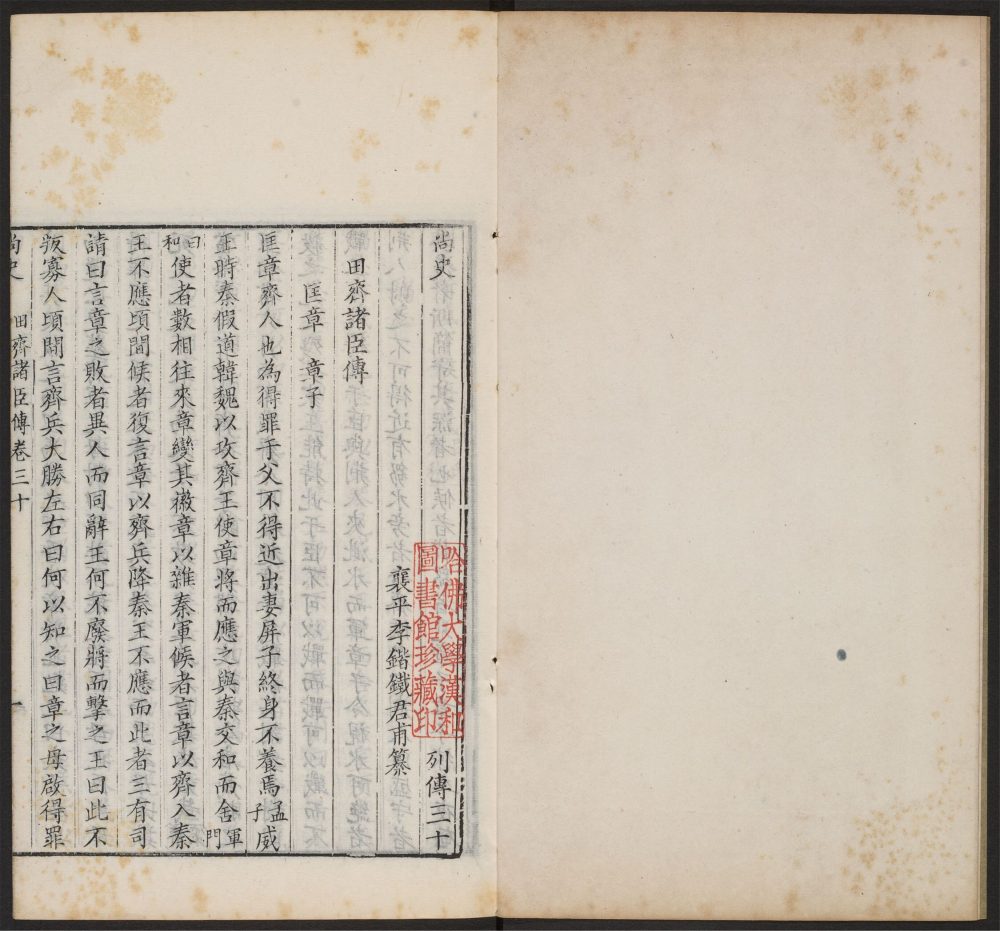 尚史 列傳三十
襄平李鍇鐵君甫纂
田齊諸臣傳
匡章 章子
匡章齊人也為得罪于父不得近出妻屏子終身不養焉孟子威
王時秦假道韓魏以攻齊王使章將而應之與秦交和而舍軍門
曰和使者數相往來章變其徽章以雜秦軍候者言章以齊入秦
王不應頃間候者復言章以齊兵降秦王不應而此者三有司
請曰言章之敗者異人而同辭王何不廢將而擊之王曰此不
叛寡人頃間言齊兵大勝左右曰何以知之曰章之母啟得罪
尚史 田齊諸臣傳卷三十 一
哈佛大學漢和
圖書館珍藏印